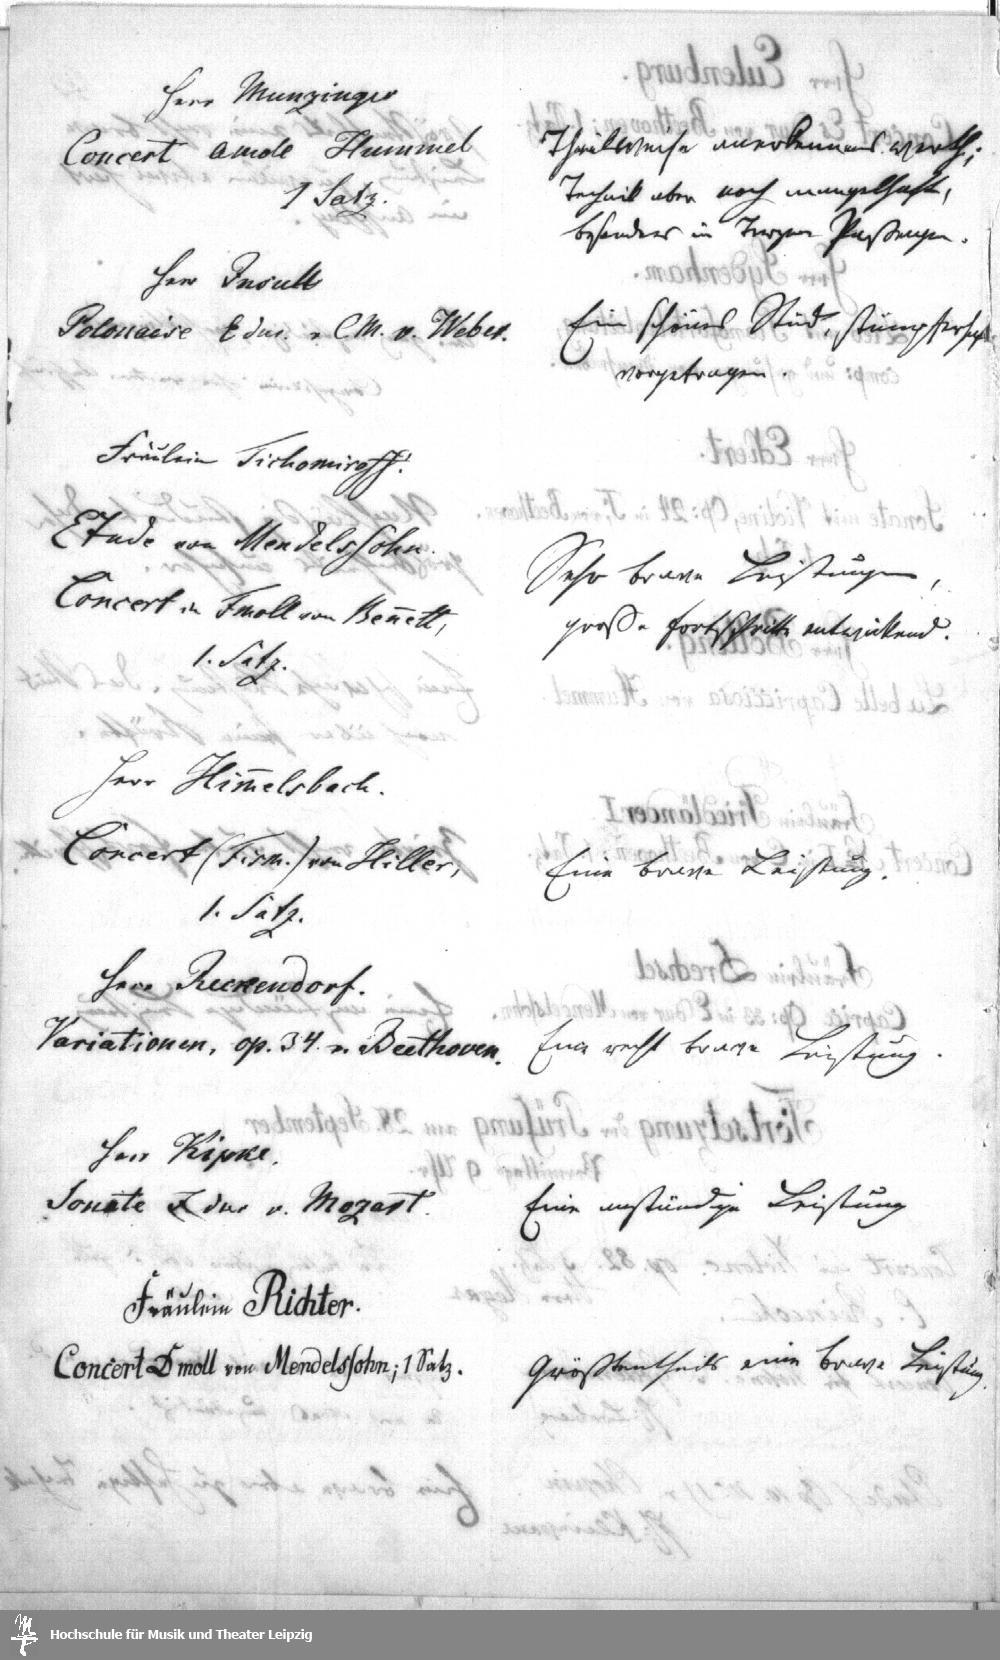 Herr Munzinger
Concert amoll Hummel
1 Satz.
Theilweise anerkennenswerth;
Technik aber noch mangelhaft,
besonders in Passagen.
Herr Insull
Polonaise Edur. v. C. M. v. Weber.
Ein schönes Stück, stümperhaft
vorgetragen.
Fräulein Tichomiroff.
Etude von Mendelssohn.
Concert in Fmoll von Bennett,
1. Satz.
Sehr brave Leistungen,
große Fortschritte entwickelnd.
Herr Himmelsbach.
Concert (Fism.) von Hiller,
1. Satz.
Eine brave Leistung.
Herr Reckendorf.
Variationen, op. 34. v. Beethoven.
Eine recht brave Leistung.
Herr Kipke.
Sonate Fdur v. Mozart.
Eine anständige Leistung
Fräulein Richter.
Concert Dmoll von Mendelssohn; 1 Satz.
Größtentheils eine brave Leistung.
Hochschule für Musik und Theater Leipzig